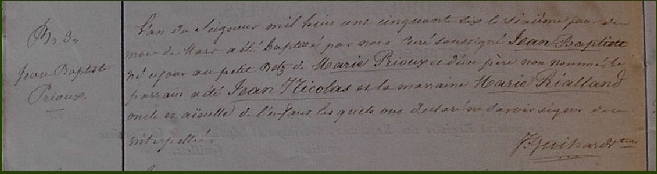 N° 3.
Jean Baptiste
Prioux
L'an du Seigneur mil huit cent cinquante six le sixième jour du
mois de Mars a été baptisé par nous curé soussigné Jean Baptiste
né ce jour au petit de Marie Prioux et d'un père non nommé le
parrain a été Jean Nicolas et la marraine Marie Réalland
oncle et de l'enfant les quels ont déclaré ne savoir signer de ce
interpellés
J. Guihard